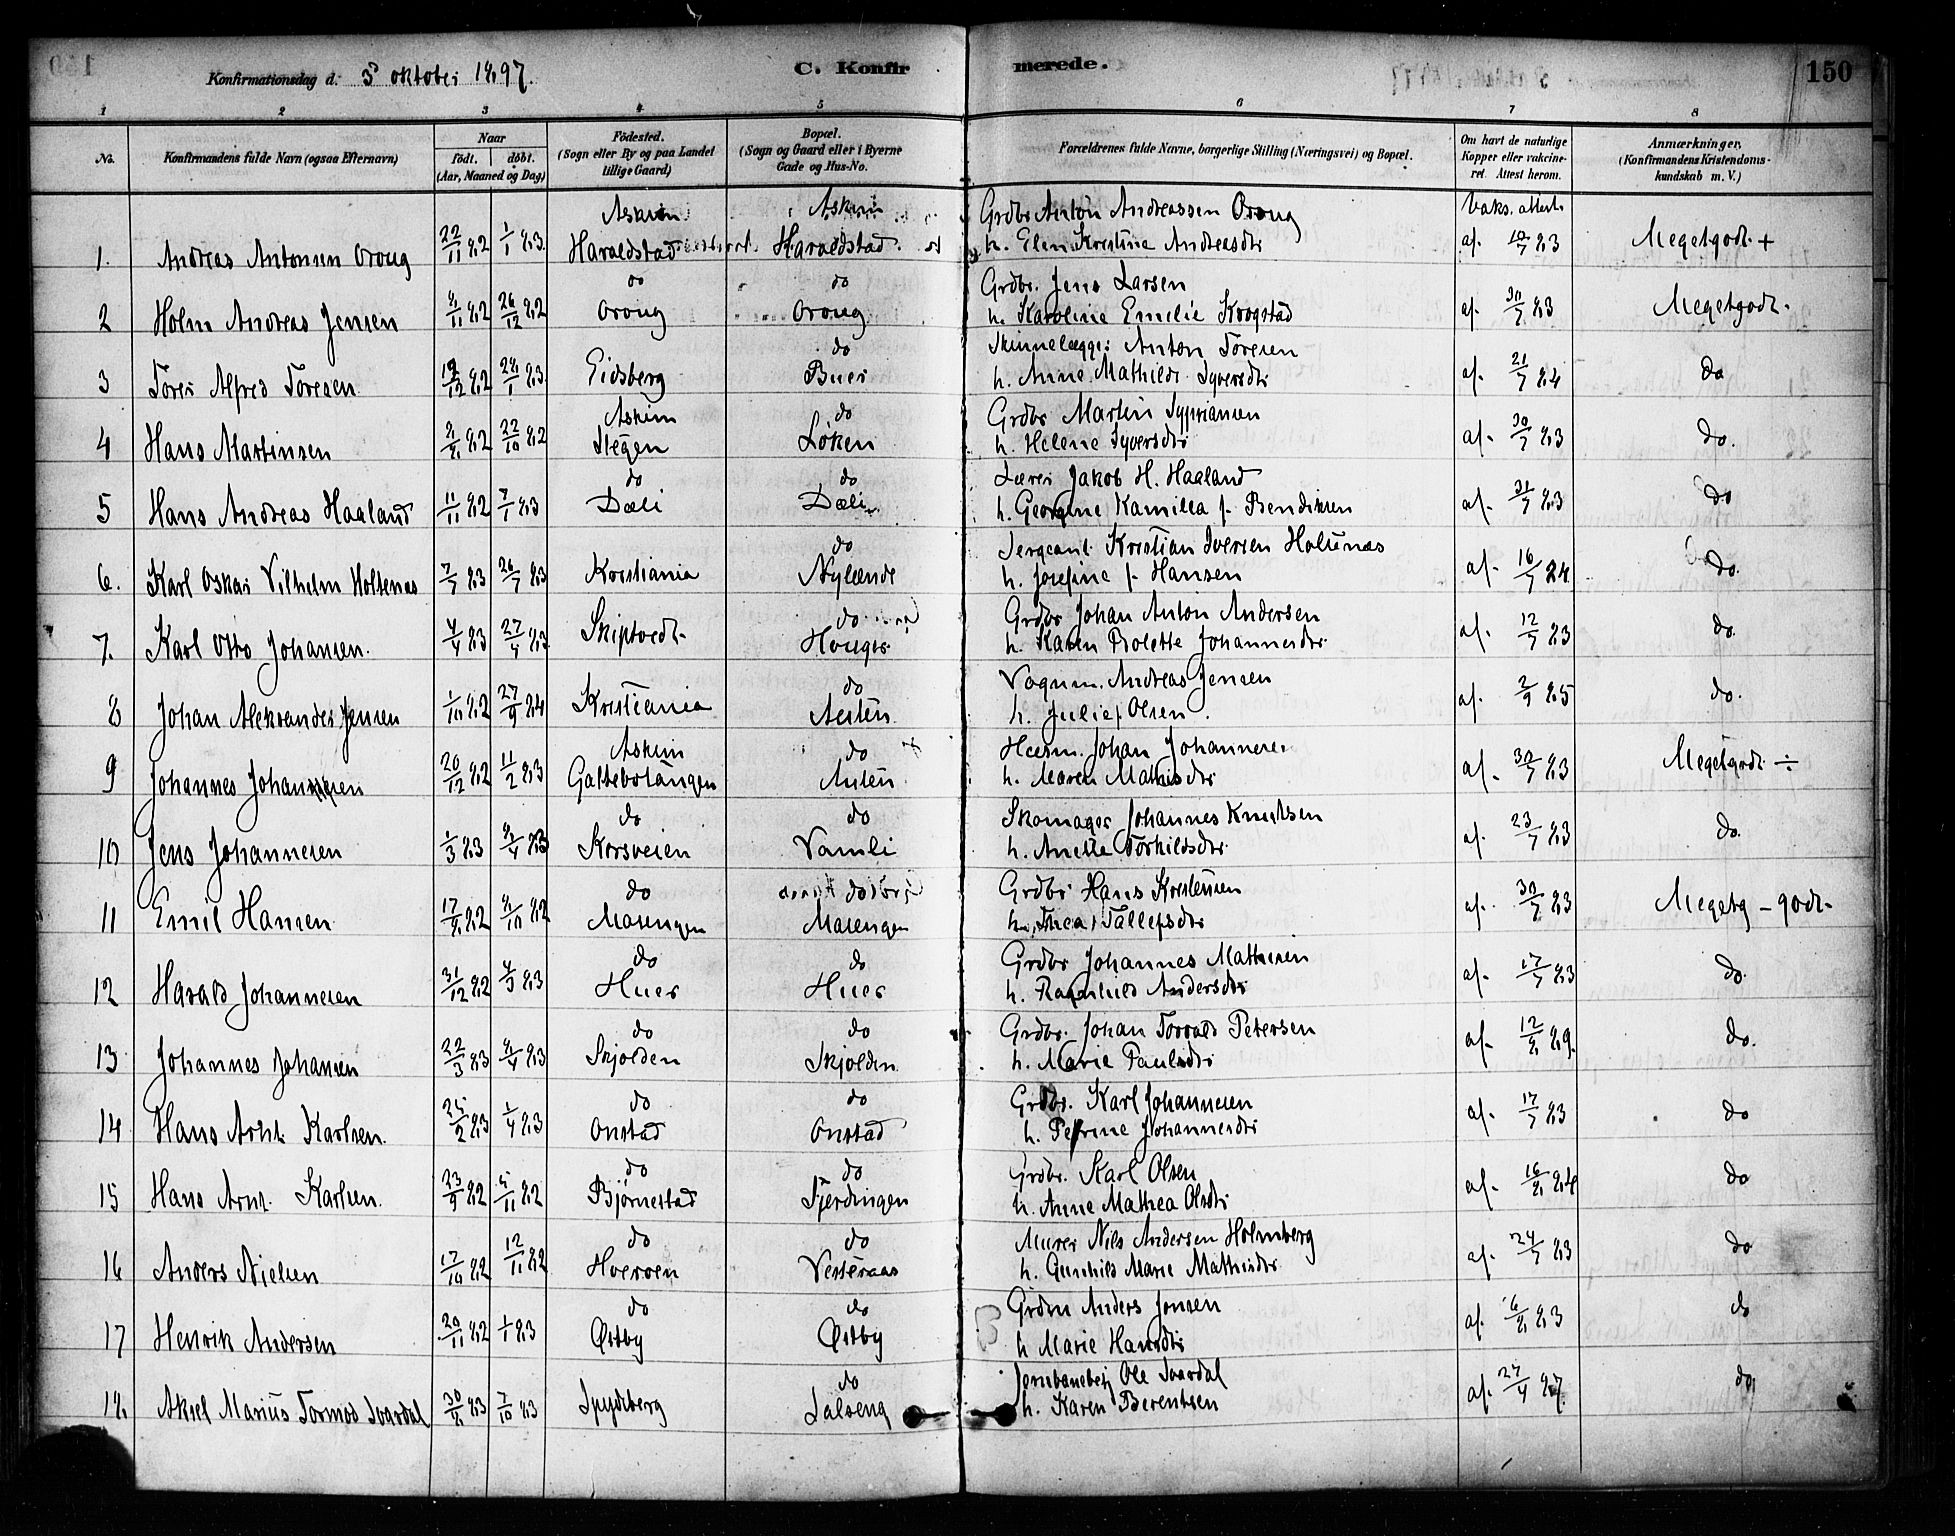 Konfirmationsdag d. 3 oktober 1897.
C. Konfirmerede.
150
1 2 3 4 5 6 7 8
No.
Konfirmandens fulde Navn (ogsaa Efternavn)
Naar
født. døbt.
(Aar, Maaned og Dag)
Fødested.
(Sogn eller By og paa Landet
tillige Gaard)
Bopæl.
(Sogn og Gaard eller i Byerne
Gade og Hus-No.
Forældrenes fulde Navne, borgerlige Stilling (Næringsvei) og Bopæl.
Om havt de naturlige
Kopper eller vakcine-
ret. Attest herom.
Anmærkninger,
(Konfirmandens Kristendoms-
kundskab m. V.)
Askim Askim Grdbr Anton Andreassen Oroug Vaks. attest
1. Andreas Antonsen Oroug 22/11 82 1/1 83 Haraldstad Haraldstad h. Elen Kristine Andreasdtr af. 83 Megetgodt +
do do Grdbr. Jens Larsen
2 Holm Andreas Jensen 82 26/12 82 Oroug Oroug h. Karoline Emelie Krogstad af. 83 Megetgodt.
do Skinnelægger Anton Toresen
3 Torer Alfred Toresen 82 83 Eidsberg Buer h. Anne Mathilde Syversdtr af. 21/7 84 do
Askim do Grdbr Martin Sypriansen
4 Hans Martinsen 82 22/10 82 Stegen Løken h. Helene Syversdtr af. 30/7 83 do.
do do Lærer Jakob H. Haaland
5 Hans Andreas Haaland 11/11 82 7/1 83 Dæli Dæli h. Georgine Kamilla f. Bendiksen af. 31/7 83 do
do Sergeant Kristian Iversen Holtenæs
6. Karl Oskar Vilhelm Holtenæs 7/7 83 26/7 83 Kristiania Nylænde h. Josefine f. Hansen af. 16/7 84 do.
do Grdbr Johan Anton Andersen
7. Karl Otto Johansen. 4/4 83 27/4 83 Skiptvedt. Houger h. Karen Bolette Johannesdtr af. 12/7 83 do.
do Vognm. Andreas Jensen
8 Johan Aleksander Jensen 1/10 82 27/9 84 Kristiania h. Julie f. Olsen. af. 2/9 85 do.
Askim do Huusm. Johan Johannesen
9 Johannes Johannesen 20/12 82 11/2 83 Galtebotangen h. Maren Mathisdtr af. 30/7 83 Megetgodt ÷
do do Skomager Johannes Knudsen
10 Jens Johannesen 1/3 83 83 Korsveien Vamli h. Anette Torhildsdtr af. 23/7 83 do.
do do Grdbr Hans Kristensen
11 Emil Hansen 82 82 Masengen Masengen h. Thea Tallefsdtr af. 30/7 83 Megetg - godt.
do do Grdbr Johannes Mathisen
12 Harald Johannesen 31/12 82 83 Huer Huer h. Ragnhild Andersdtr af. 17/7 83 do.
do do Grdbr. Johan Torvald Petersen
13 Johannes Johansen 22/3 83 83 Skjolden Skjolden h. Marie Paulsdtr af. 12/8 89. do.
do do Grdbr. Karl Johannesen
14 Hans Arnt Karlsen. 25/2 83 1/4 83 Onstad Onstad h. Petrine Johannesdtr af. 17/7 83 do
do do Grdbr. Karl Olsen
15 Hans Arnt. Karlsen. 23/9 82 5/11 82 Bjørnestad Fjerdingen h. Anne Mathea Olsdtr af. 16/8 84 do
do do Murer Nils Andersen Holmberg
16 Anders Nielsen 17/10 82 12/11 82 Hverven Vesteraas h. Gunhild Marie Mathisdtr af. 24/7 83 do
do do Grdm Anders Jonsen
17 Henrik Andersen 20/11 82 1/1 83 Østby Østby h Marie Hansdtr af. 6/8 83 do
do Jernbanebetj Ole Svardal
18 Aksel Marius Tormod Svardal 30/8 83 7/10 83 Spydeberg Solseng h. Karen Berentsen af. 27/4 87. do